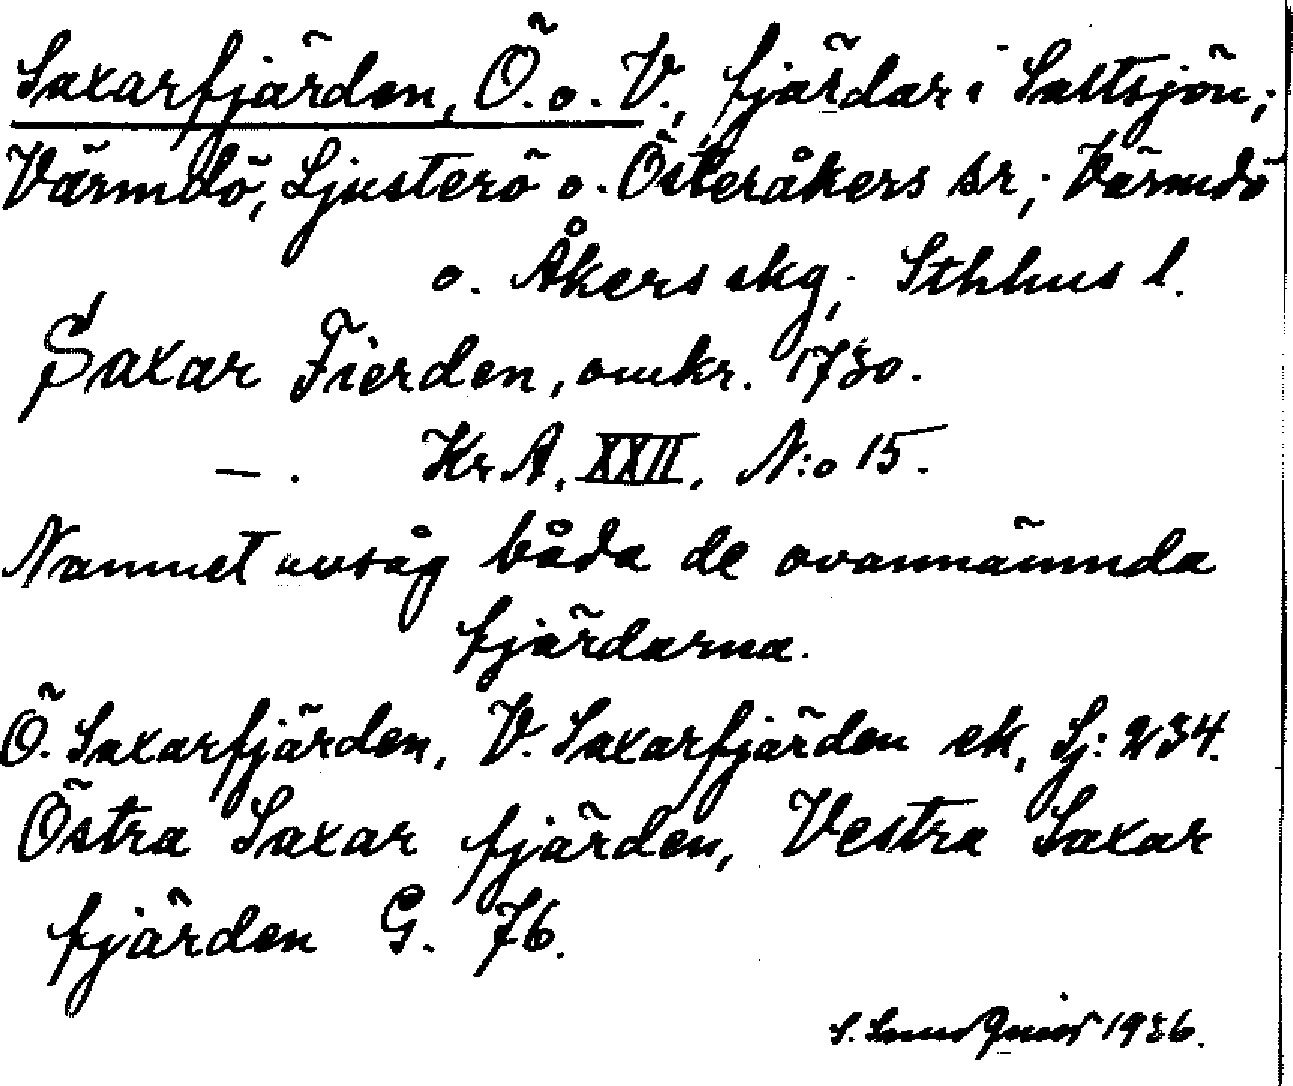 Saxarfjärden, Ö. o. V., fjärdar i Saltsjön;
Värmdö, Ljusterö o. Österåkers sr; Värmdö
o. Åkers skg; Sthlms l.
Saxar Fierden, omkr. 1730.
— . KrA, XXII, N:o 15.
Namnet avsåg båda de ovannämnda
fjärdarna.
Ö. Saxarfjärden, V. Saxarfjärden ek, Sj: 234.
Östra Saxar fjärden, Vestra Saxar
fjärden G. 76.
S. 1936.